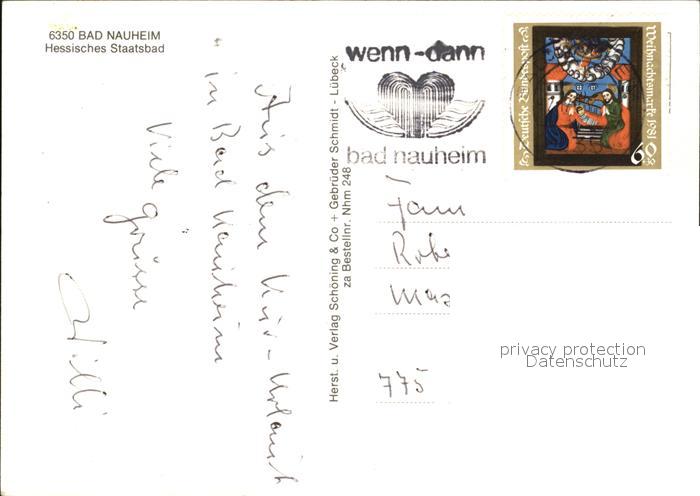 6350 BAD NAUHEIM
Hessisches Staatsbad
Aus dem Kur-Urlaub
in Bad Nauheim
Viele Grüsse
Willi
Herst. u. Verlag Schöning & Co + Gebrüder Schmidt - Lübeck
za Bestellnr. Nhm 248
wenn-dann
bad nauheim
Deutsche Bundespost
Weihnachtsmarke 1981
60
Fam
775
privacy protection
Datenschutz